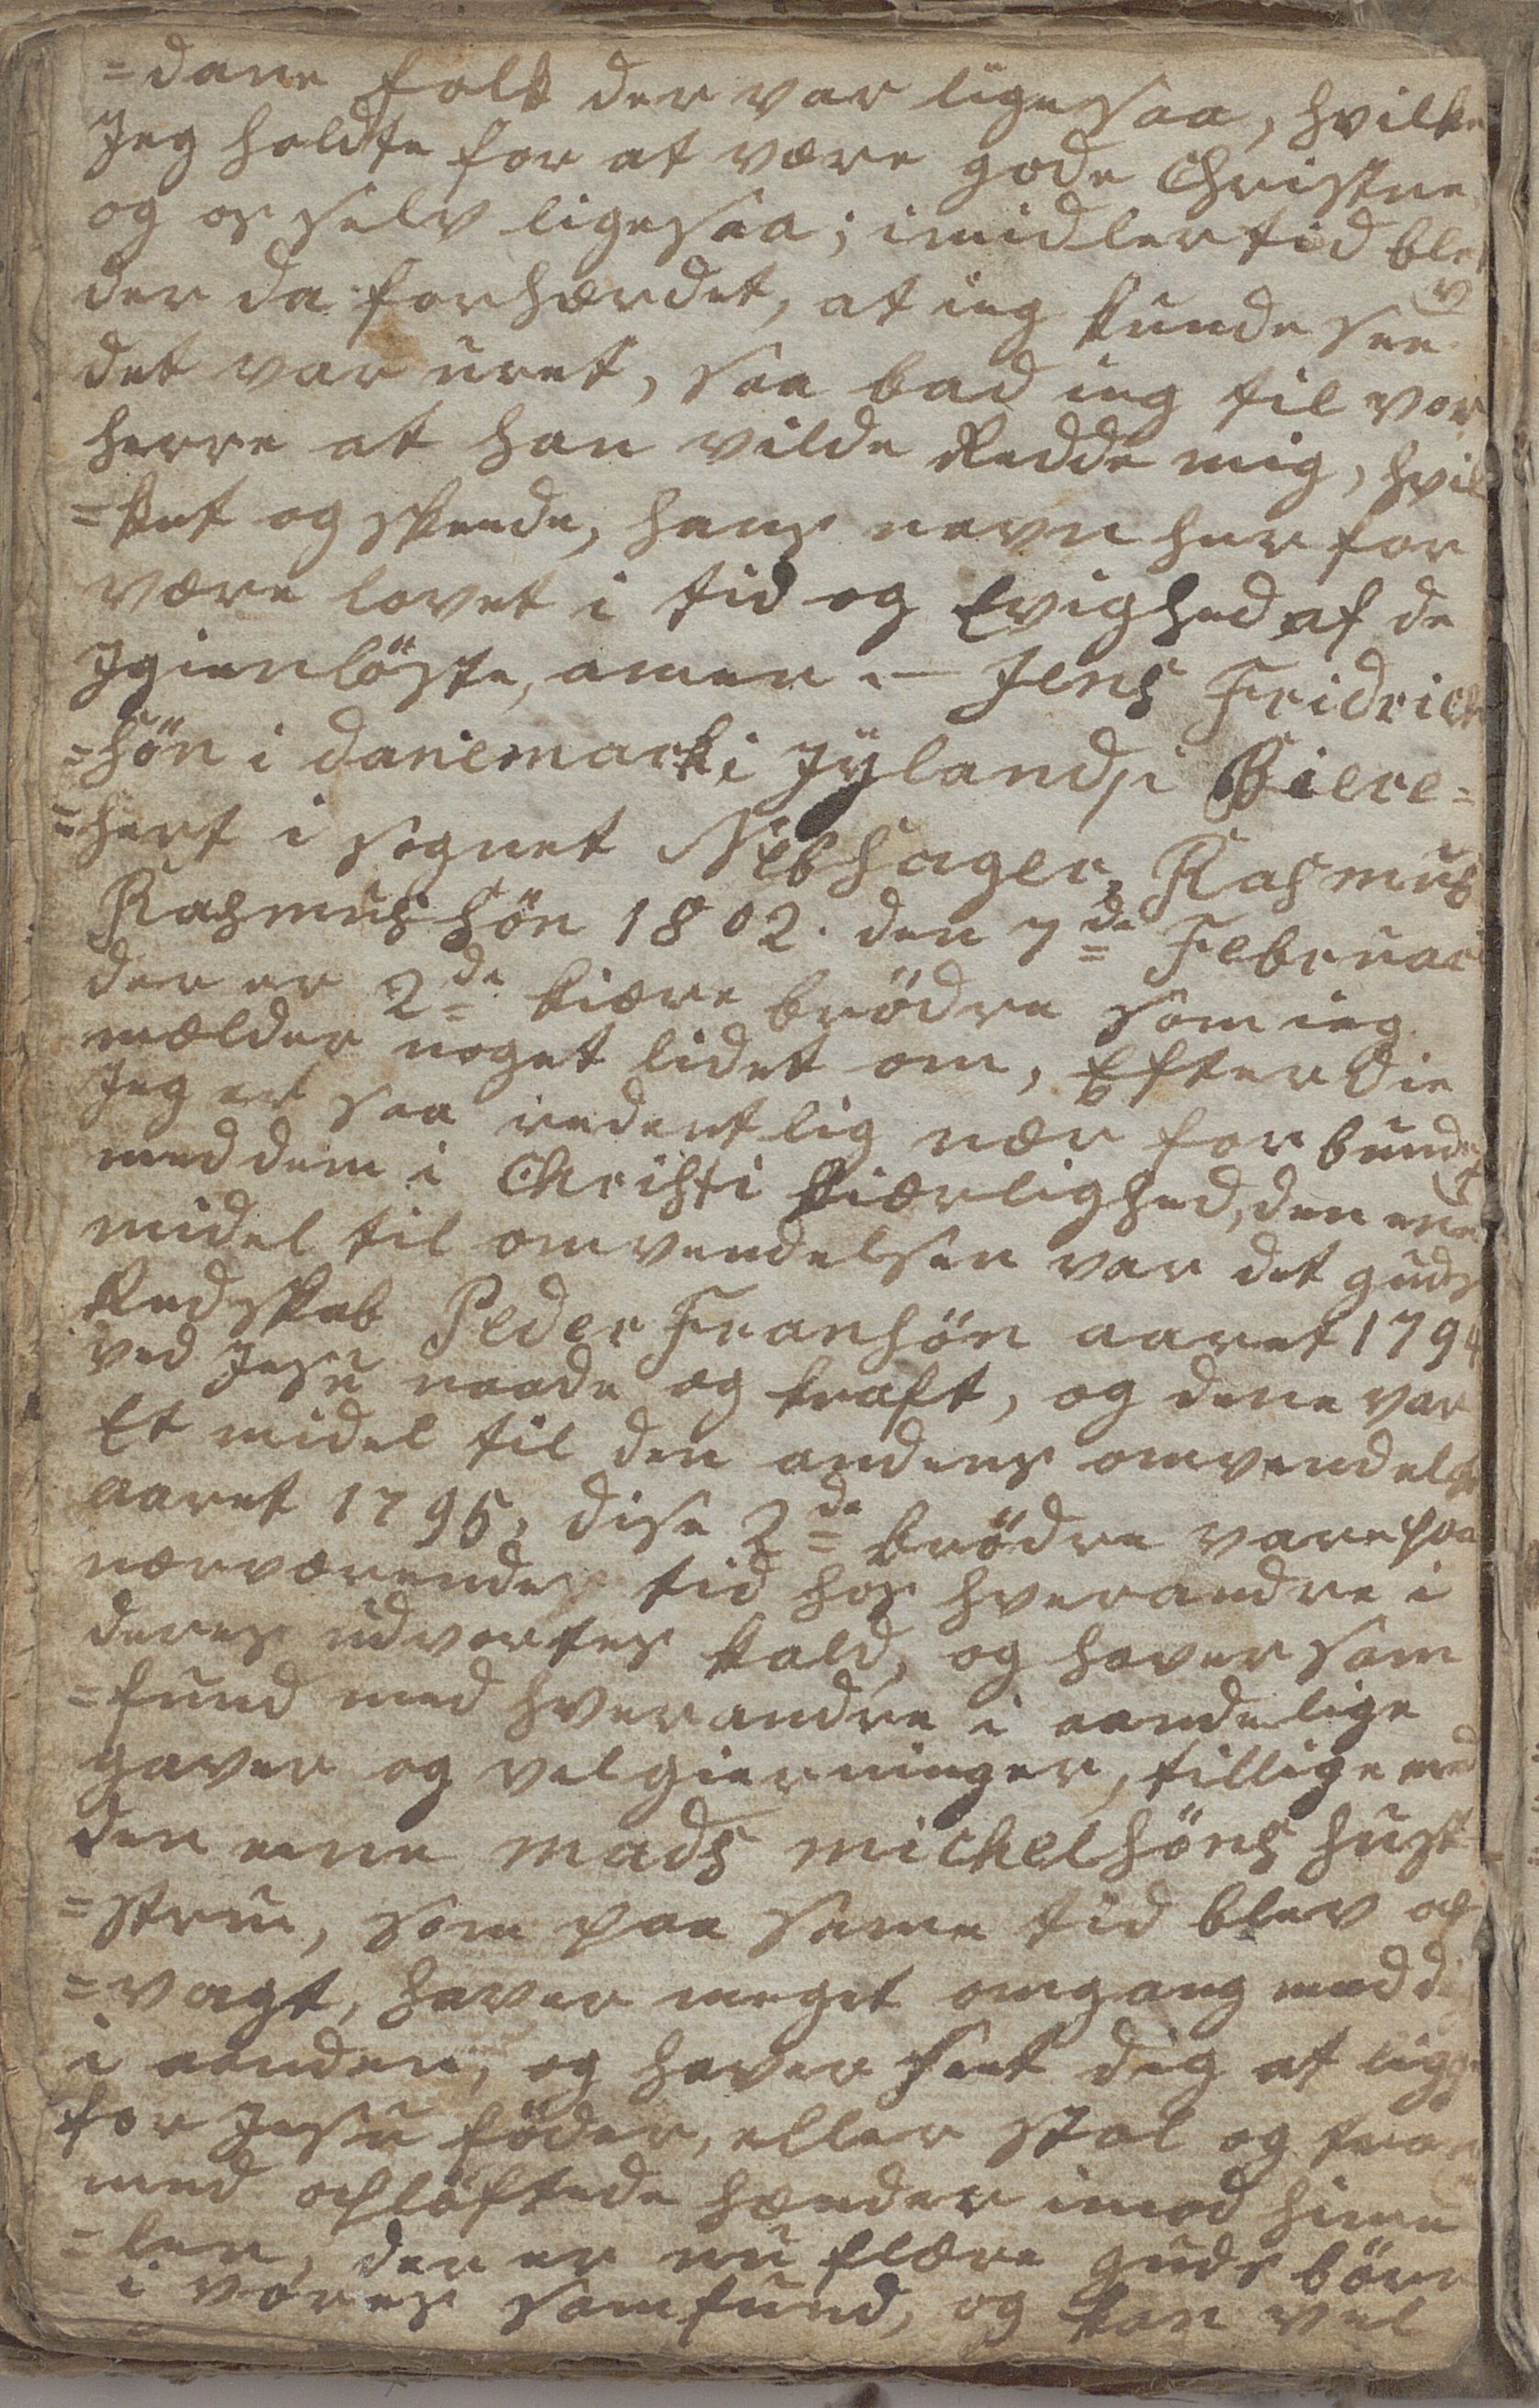 =dane folk der var ligesaa, hvilke
Jeg holdte for at være gode Christne,
og os selv ligesaa; imidlertid blev
der da forhærdet, at ieg kunde see
det var uret, saa bad ieg til vor
herre at han vilde Redde mig, hvil
=ket og skeede, hans navn her for
være lovet i tid og Evighed af de
Igienløste, amen. — Jens Fridrich
=søn i danemark i Jÿland, i Biere=
=hert i sognet Nebsager, Rasmus
Rasmussøn 1802. den 7de Februari
der er 2de kiære brödre som ieg
mælder noget lidet om, Efterdie
Jeg er saa inderlig nær forbundet
med dem i Christi kiærlighed, den ene
midel til omvendelsen var det guds
Redskab Peder Fransön aaret 1794
ved Jesu naade og kraft, og dene var
Et midel til den andens omvendelse
aaret 1795, dise 2de brödre vare paa
nærværendes tid hos hverandre i
deres udvortes kald, og haver sam
=fund med hverandre i aandelige
gaver og velgierninger, tillige med
den eene mads michelsöns hust
=stru, som paa same tid blev op
=vagt, haver meget omgang med dig
i aanden, og haver seet dig at ligge
for Jesu föder, eller stol og
med opløftede hænder imod himme
=len, der er nu flære guds börn
i vores samfund, og kan vel